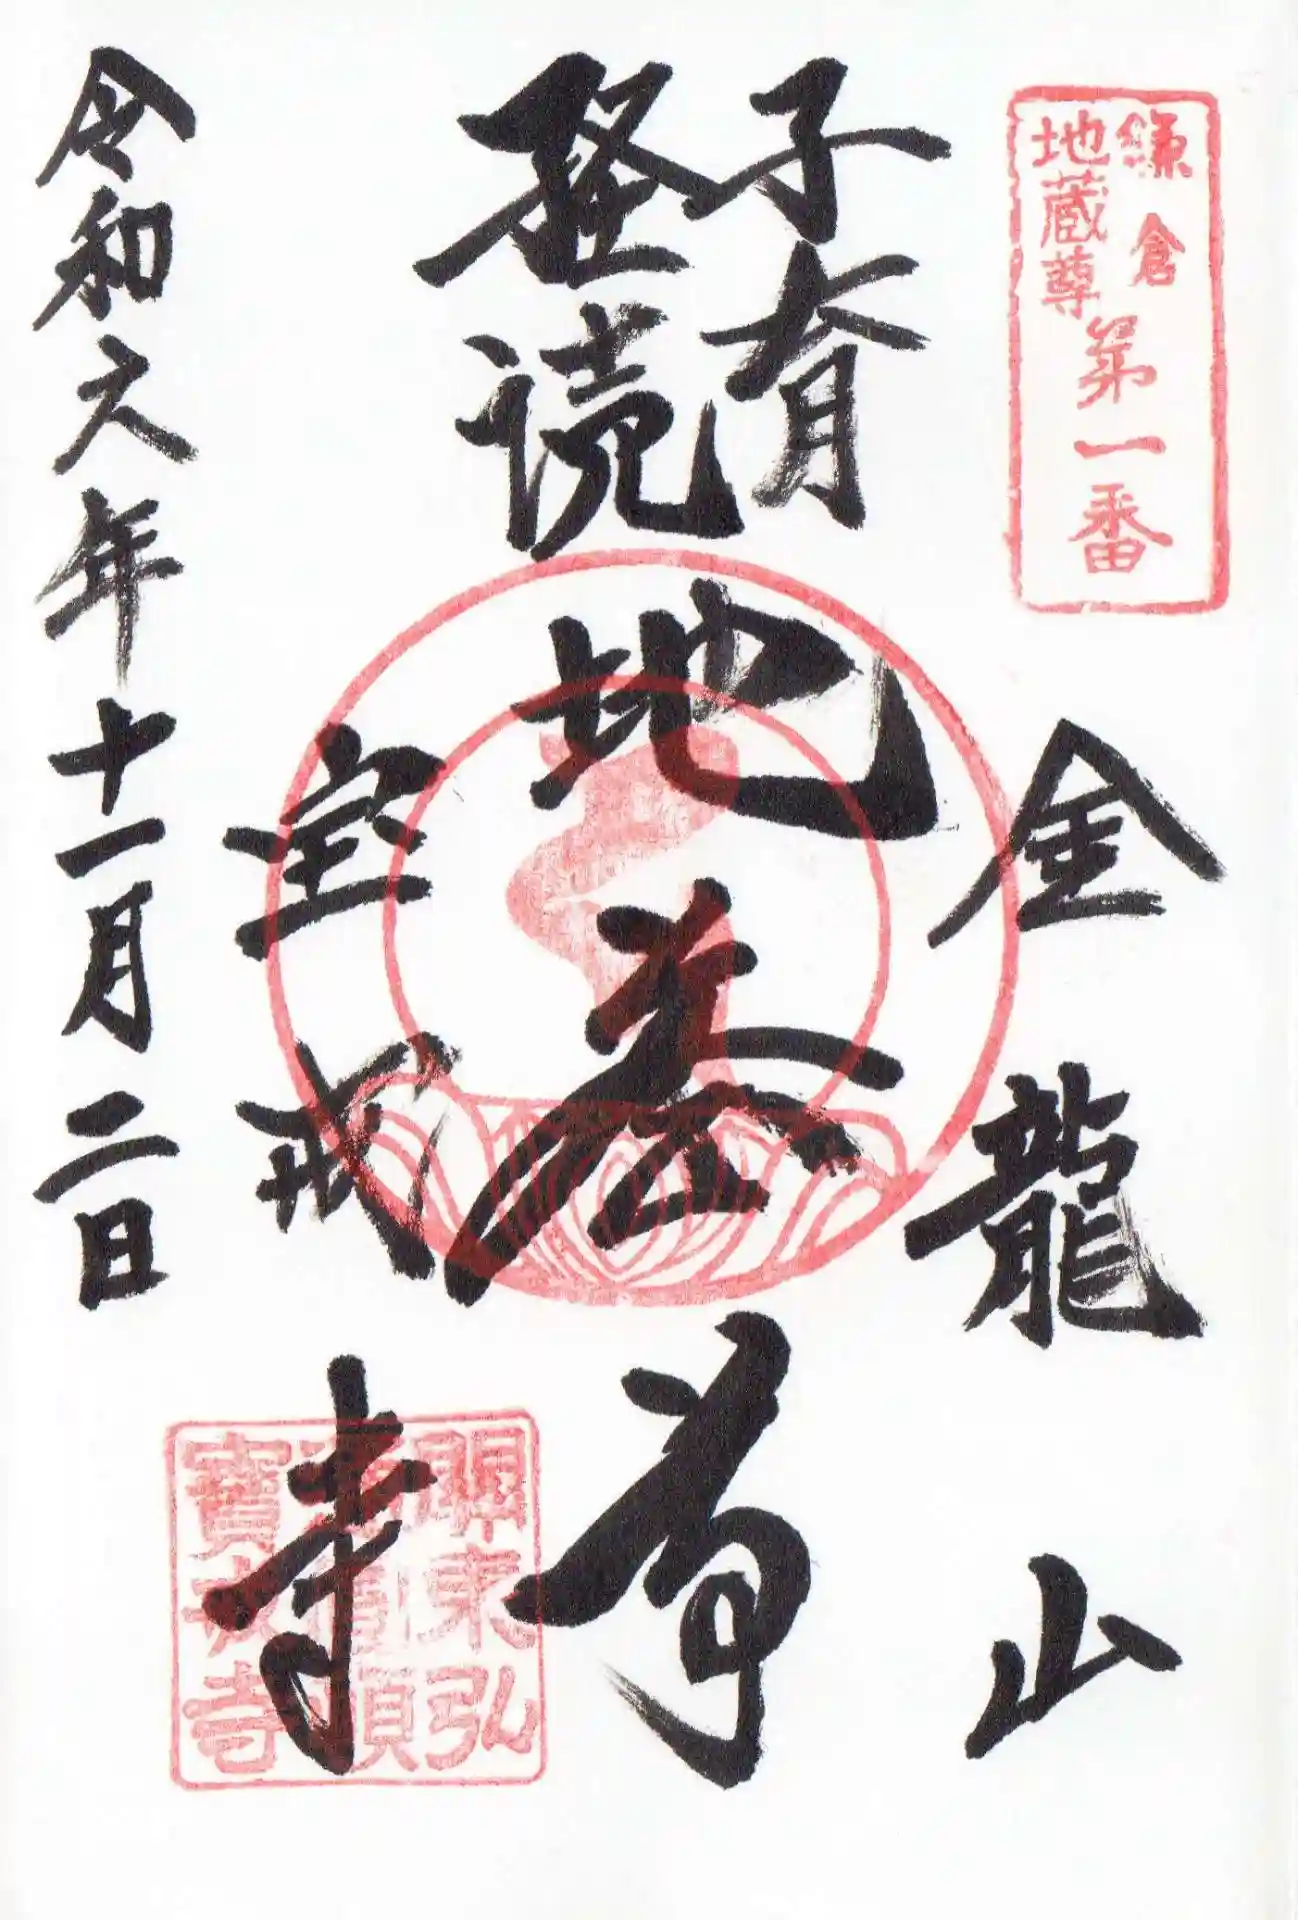 鎌倉
地蔵尊
第一番
金龍山
子育
経読
地蔵尊
宝戒寺
關東弘
頓
寶戒寺
令和六年十一月二日